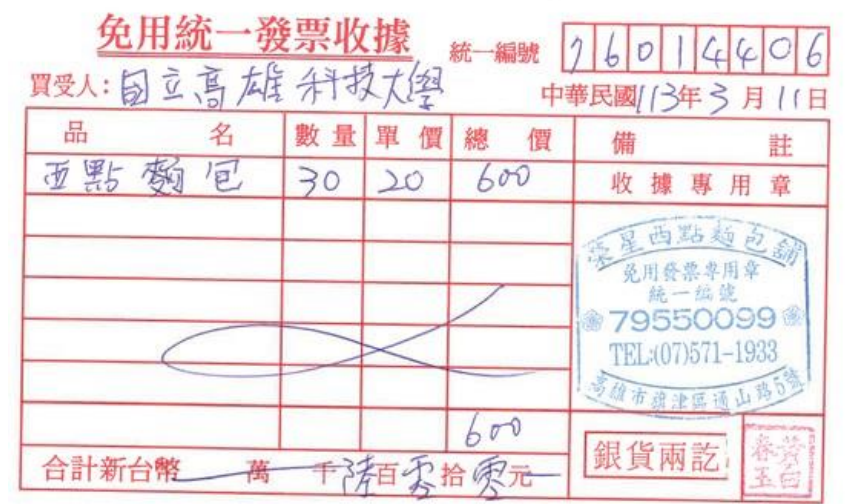 免用統一發票收據
統一編號 76014406
買受人:国立高雄科技大學
中華民國113年3月11日
品名 數量 單價 總價 備註
西點麵包 30 20 600 收據專用章
榮星西點麵包舖
免用發票專用章
統一編號
79550099
TEL:(07)571-1933
高雄市旗津區通山路5號
600
合計新台幣 萬 千陸百零拾零元
銀貨兩訖
黃白春玉